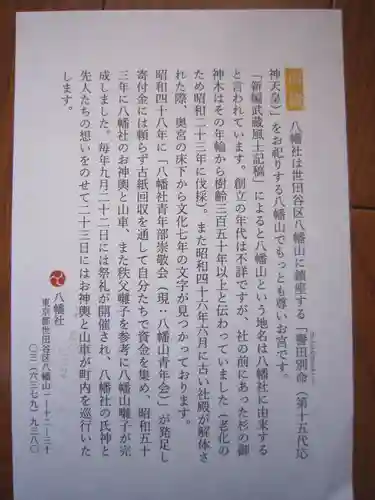 由緒
八幡社は世田谷区八幡山に鎮座する「誉田別命（第十五代応
神天皇）」をお祀りする八幡山でもっとも尊いお宮です。
「新編武蔵風土記稿」によると八幡山という地名は八幡社に由来する
と言われています。創立の年代は不詳ですが、社の前にあった杉の御
神木はその年輪から樹齢三百五十年以上と伝わっていました（老化の
ため昭和二十三年に伐採）。また昭和四十六年六月に古い社殿が解体さ
れた際、奥宮の床下から文化七年の文字が見つかっております。
昭和四十八年に「八幡社青年部崇敬会（現：八幡山青年会）」が発足し
寄付金には頼らず古紙回収を通して自分たちで資金を集め、昭和五十
三年に八幡社のお神輿と山車、また秩父囃子を参考に八幡山囃子が完
成しました。毎年九月二十二日には祭礼が開催され、八幡社の氏神と
先人たちの想いをのせて二十三日にはお神輿と山車が町内を巡行いた
します。
八幡社
東京都世田谷区八幡山一-十二-三十
〇三（六三七九）九三八〇